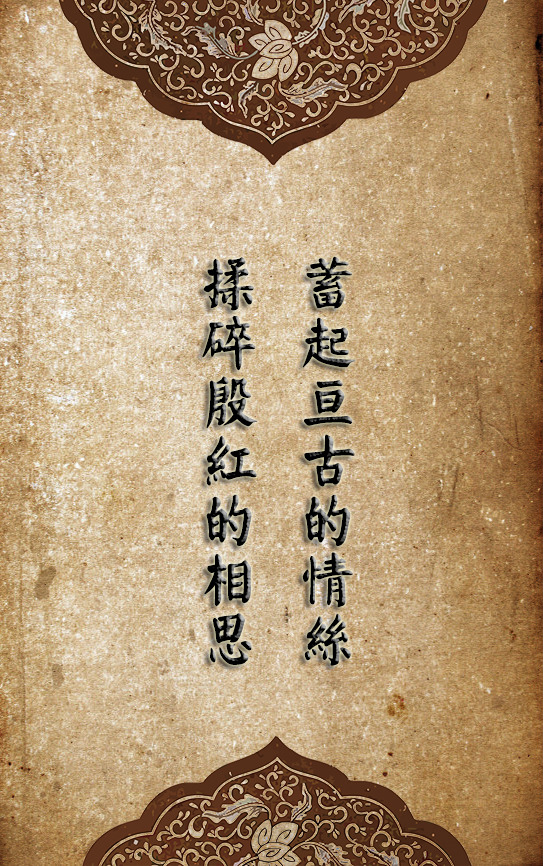 蓄起亘古的情絲
揉碎殷紅的相思